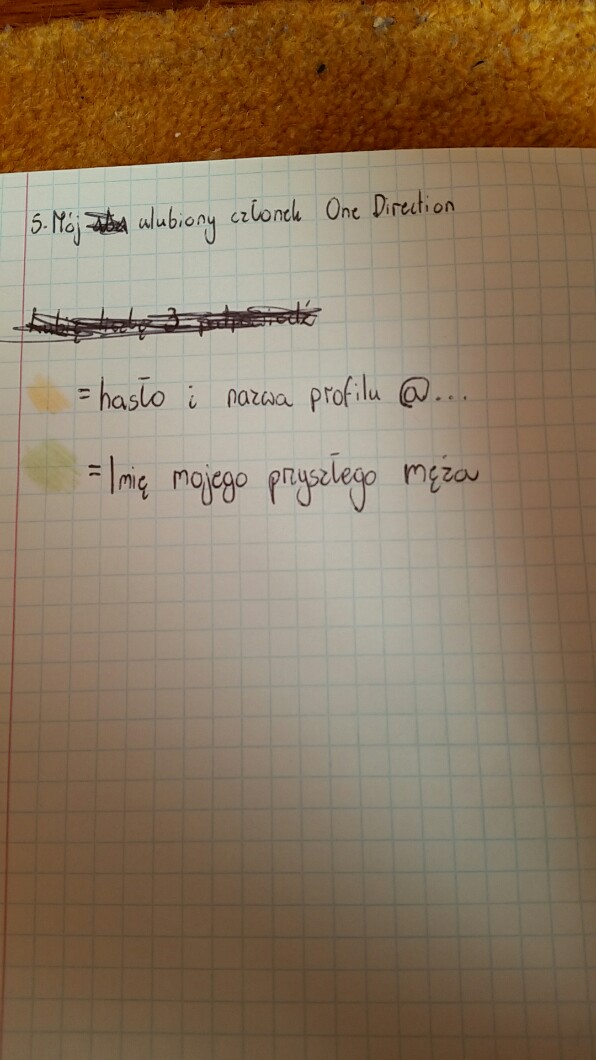 5. Mój ulubiony członek One Direction
= hasło i nazwa profilu @...
= Imię mojego przyszłego męża